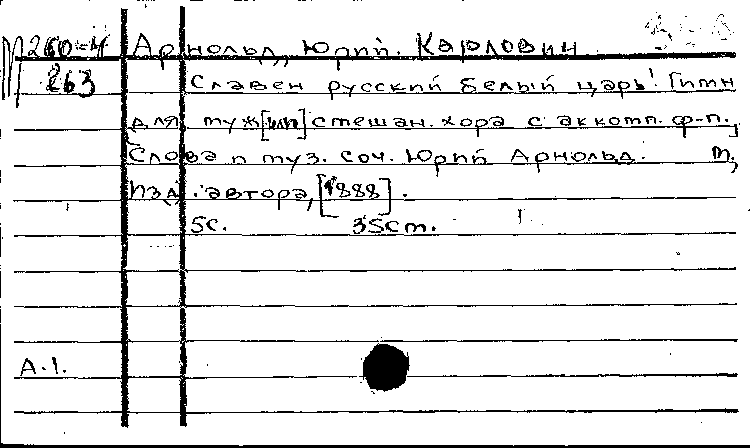 М260-4 Арнольд, Юрий Карлович
263 Славен русский белый царь! Гимн
для муж[или] смешан. хора с аккомп. ф-п.,
Слова и муз. соч. Юрий Арнольд. М,
Изд. автора, [1888].
5с. 35см.
А.1.